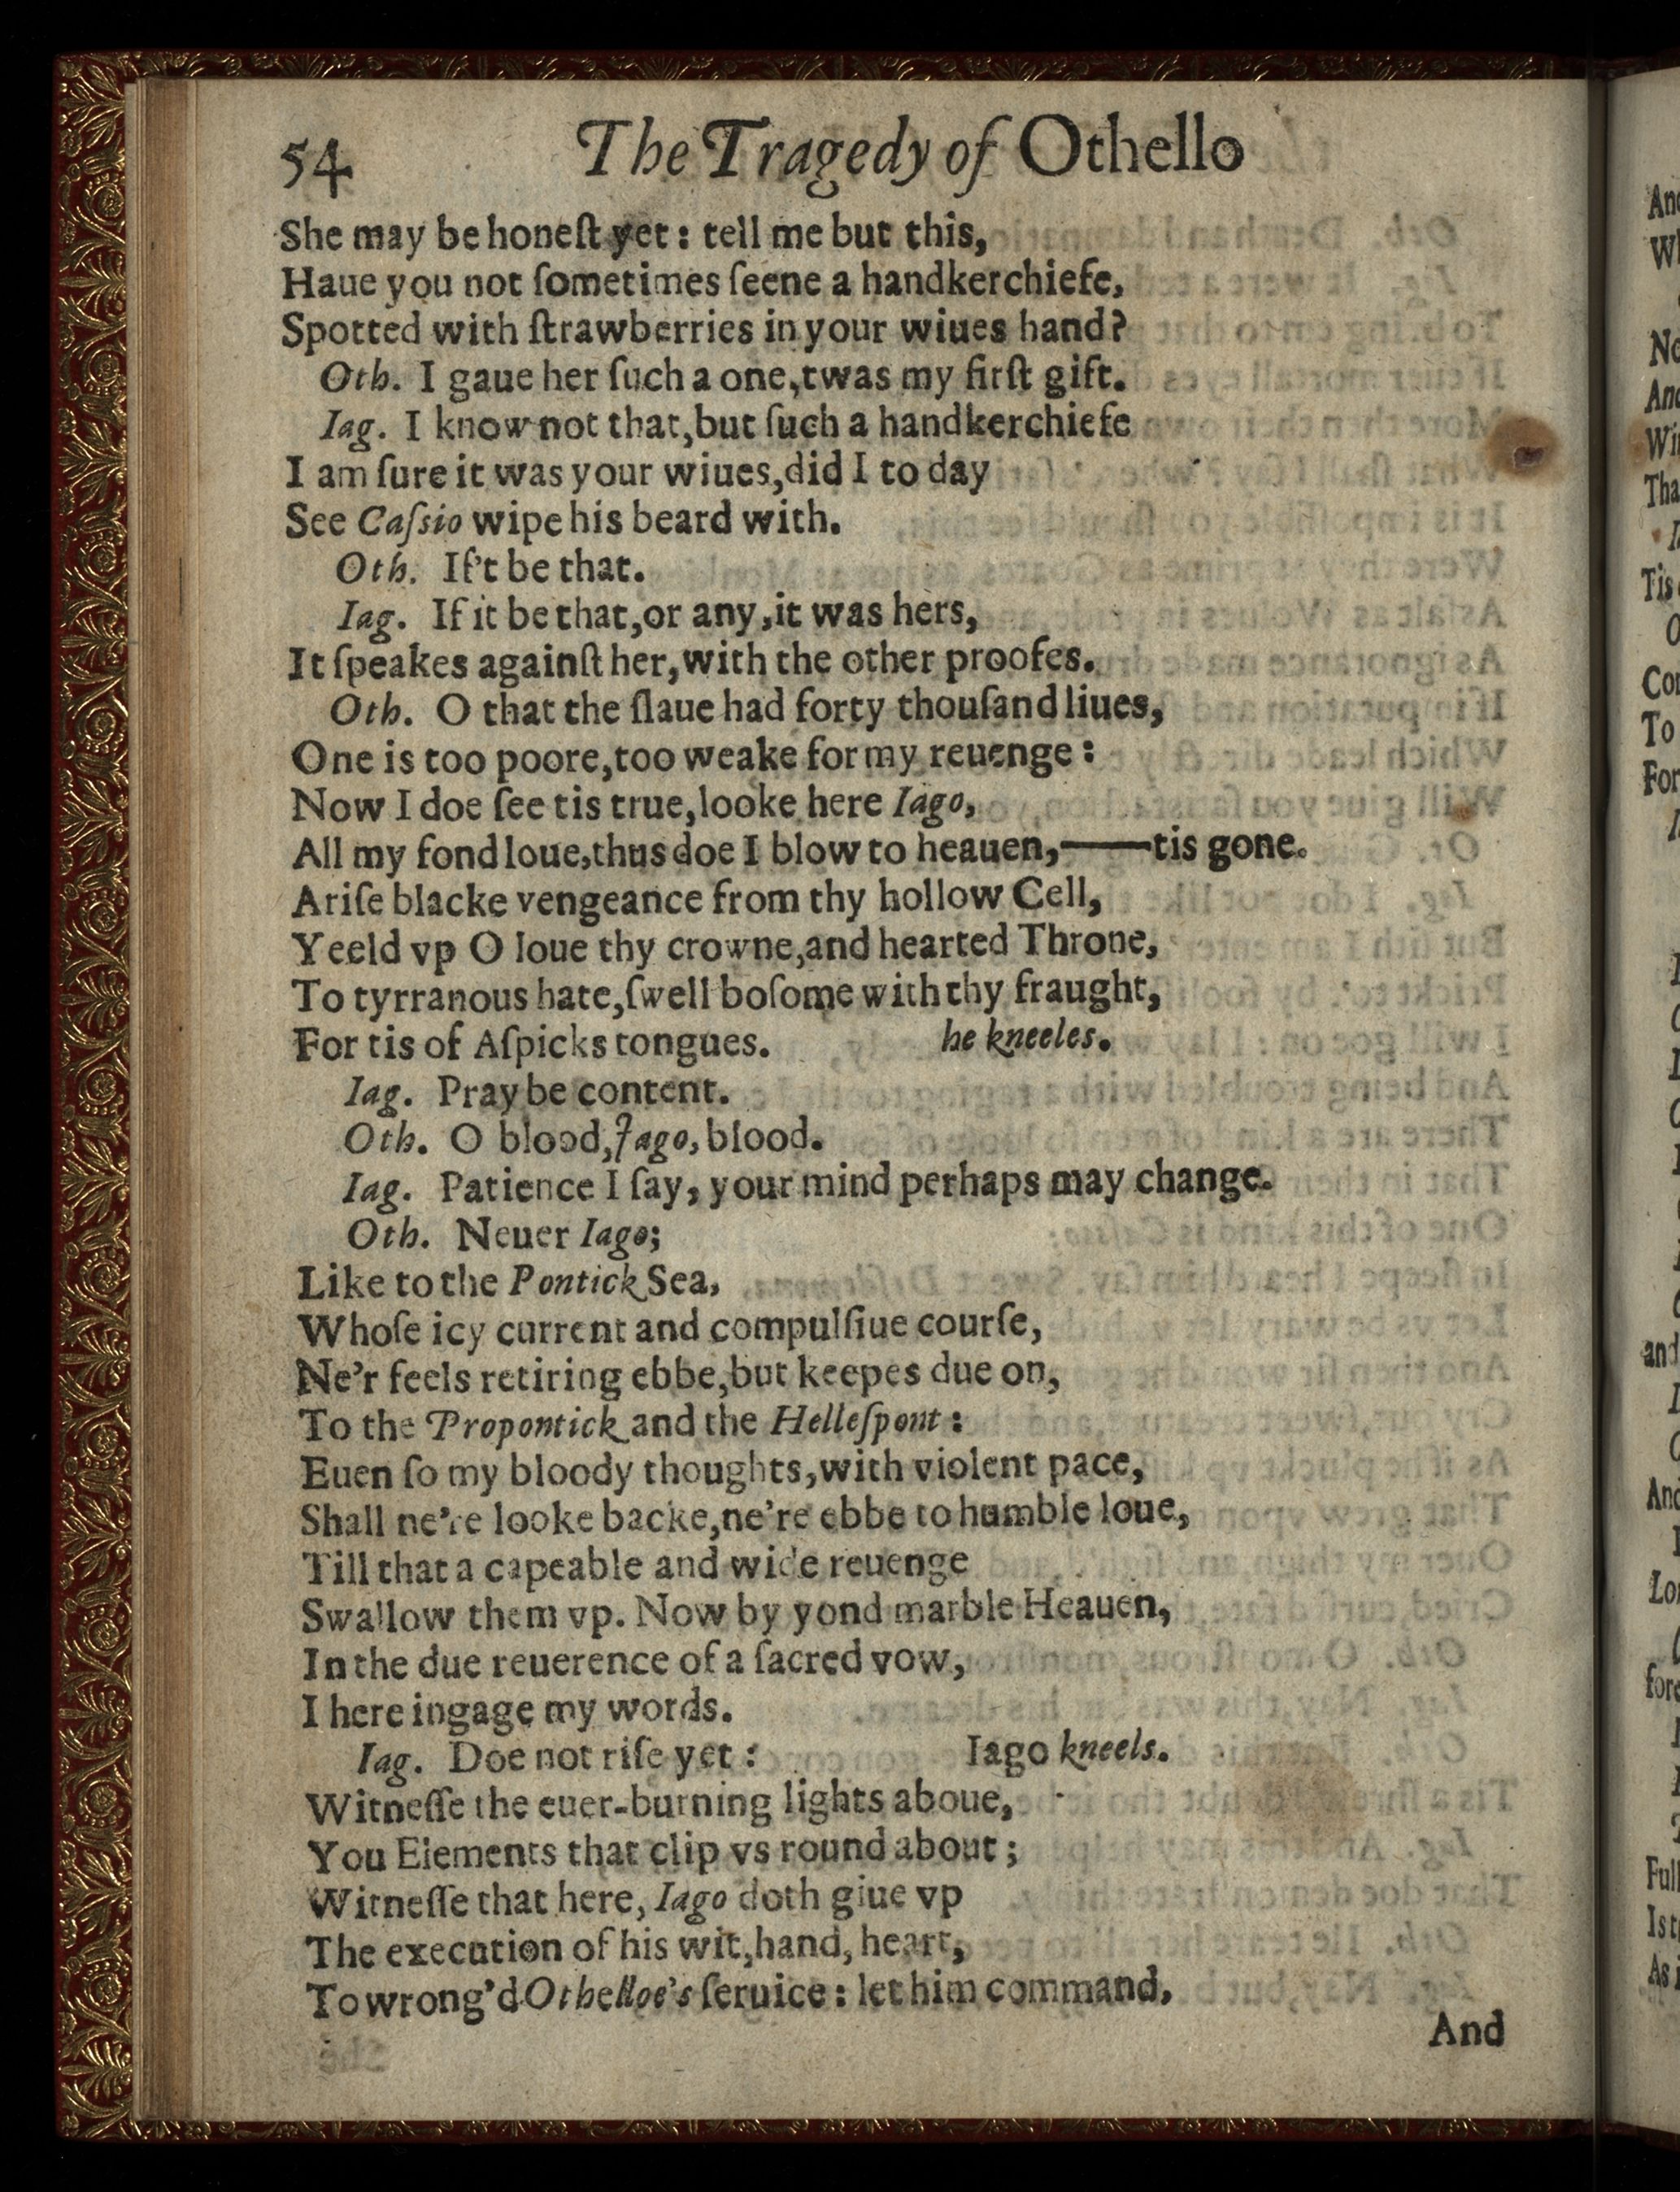 54 The Tragedy of Othello
She may be honeſt yet : tell me but this,
Haue you not ſometimes ſeene a handkerchiefe,
Spotted with ſtrawberries in your wiues hand?
Oth. I gaue her ſuch a one, twas my firſt gift.
Iag. I know not that, but ſuch a handkerchiefe
I am ſure it was your wiues, did I to day
See Caſsio wipe his beard with.
Oth. If't be that.
Iag. If it be that, or any, it was hers,
It ſpeakes againſt her, with the other proofes.
Oth. O that the ſlaue had forty thouſand liues,
One is too poore, too weake for my reuenge :
Now I doe ſee tis true, looke here Iago,
All my fond loue, thus doe I blow to heauen,——tis gone.
Ariſe blacke vengeance from thy hollow Cell,
Yeeld vp O loue thy crowne, and hearted Throne,
To tyrranous hate, ſwell boſome with thy fraught,
For tis of Aſpicks tongues. he kneeles.
Iag. Pray be content.
Oth. O blood, Iago, blood.
Iag. Patience I ſay, your mind perhaps may change.
Oth. Neuer Iago;
Like to the Pontick Sea,
Whoſe icy current and compulſiue courſe,
Ne'r feels retiring ebbe, but keepes due on,
To the Propontick and the Helleſpont :
Euen ſo my bloody thoughts, with violent pace,
Shall ne're looke backe, ne're ebbe to humble loue,
Till that a capeable and wide reuenge
Swallow them vp. Now by yond marble Heauen,
In the due reuerence of a ſacred vow,
I here ingage my words.
Iag. Doe not riſe yet : Iago kneels.
Witneſſe the euer-burning lights aboue,
You Elements that clip vs round about ;
Witneſſe that here, Iago doth giue vp
The execution of his wit, hand, heart,
To wrong'd Othelloe's ſeruice : let him command,
And